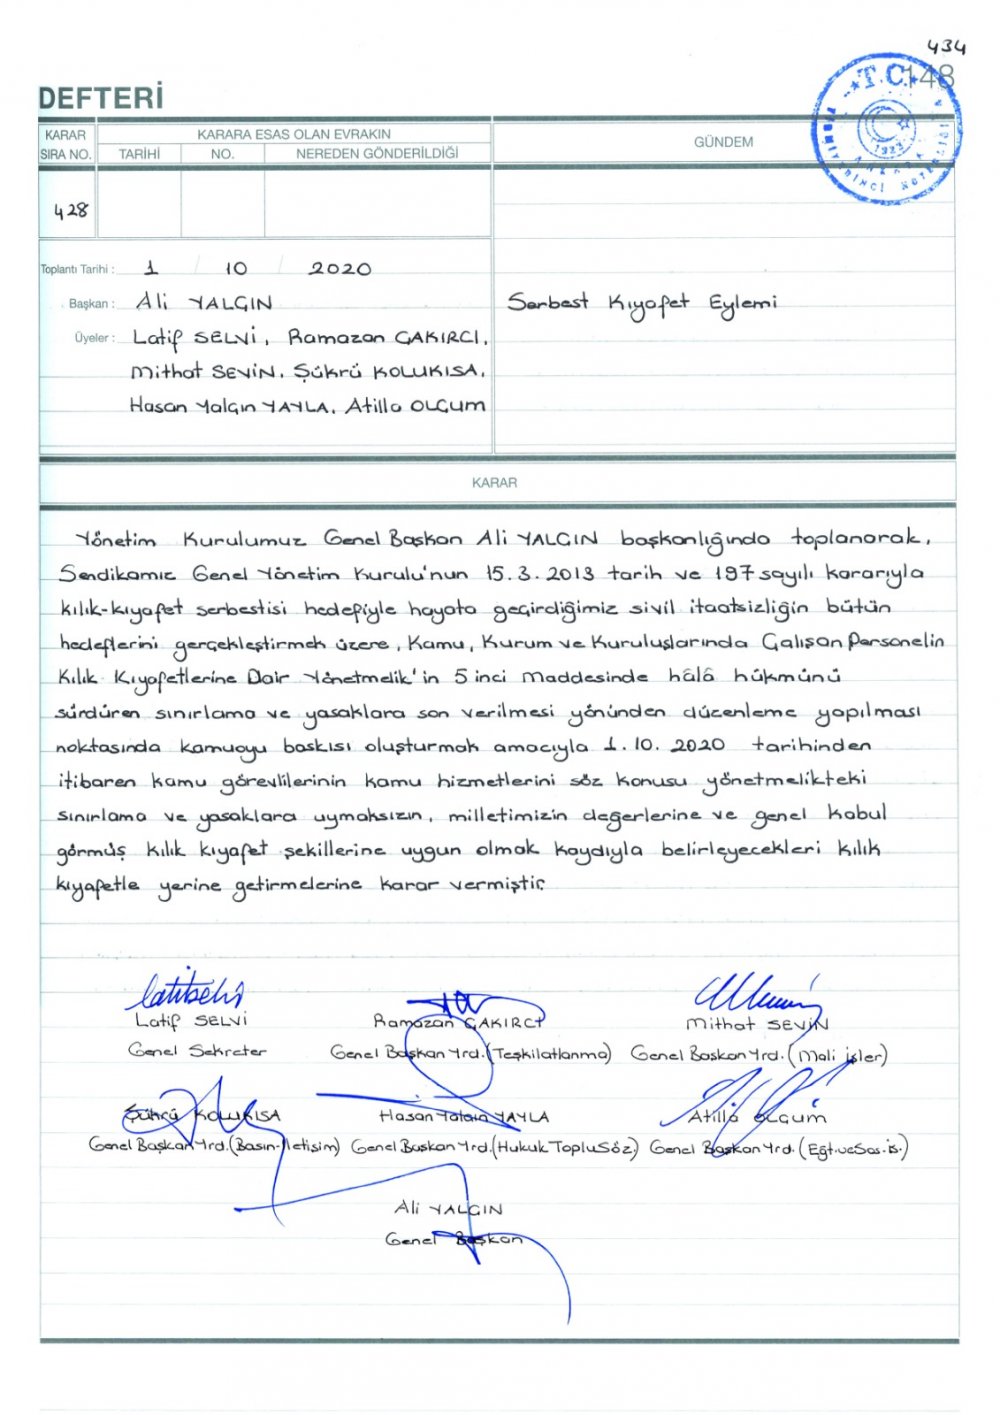 434
148
T.C.
1923
ANKARA
DEFTERİ
KARAR SIRA NO.
KARARA ESAS OLAN EVRAKIN
TARİHİ NO. NEREDEN GÖNDERİLDİĞİ
GÜNDEM
428
Toplantı Tarihi : 1 / 10 / 2020
Başkan : Ali YALÇIN
Serbest Kıyafet Eylemi
Üyeler : Latif SELVİ, Ramazan ÇAKIRCI,
Mithat SEVİN, Şükrü KOLUKISA,
Hasan Yalçın YAYLA, Atilla OLÇUM
KARAR
Yönetim Kurulumuz Genel Başkan Ali YALÇIN başkanlığında toplanarak,
Sendikamız Genel Yönetim Kurulu'nun 15.3.2013 tarih ve 197 sayılı kararıyla
kılık-kıyafet serbestisi hedefiyle hayata geçirdiğimiz sivil itaatsizliğin bütün
hedeflerini gerçekleştirmek üzere, Kamu, Kurum ve Kuruluşlarında Çalışan Personelin
Kılık Kıyafetlerine Dair Yönetmelik'in 5 inci Maddesinde hâlâ hükmünü
sürdüren sınırlama ve yasaklara son verilmesi yönünden düzenleme yapılması
noktasında kamuoyu baskısı oluşturmak amacıyla 1.10.2020 tarihinden
itibaren kamu görevlilerinin kamu hizmetlerini söz konusu yönetmelikteki
sınırlama ve yasaklara uymaksızın, milletimizin değerlerine ve genel kabul
görmüş kılık kıyafet şekillerine uygun olmak kaydıyla belirleyecekleri kılık
kıyafetle yerine getirmelerine karar vermiştir.
Latif SELVİ Ramazan ÇAKIRCI Mithat SEVİN
Genel Sekreter Genel Başkan Yrd. (Teşkilatlanma) Genel Başkan Yrd. (Mali işler)
Şükrü KOLUKISA Hasan Yalçın YAYLA Atilla OLÇUM
Genel Başkan Yrd. (Basın-İletişim) Genel Başkan Yrd. (Hukuk Toplu Söz.) Genel Başkan Yrd. (Eğt. ve Sos. İş.)
Ali YALÇIN
Genel Başkan